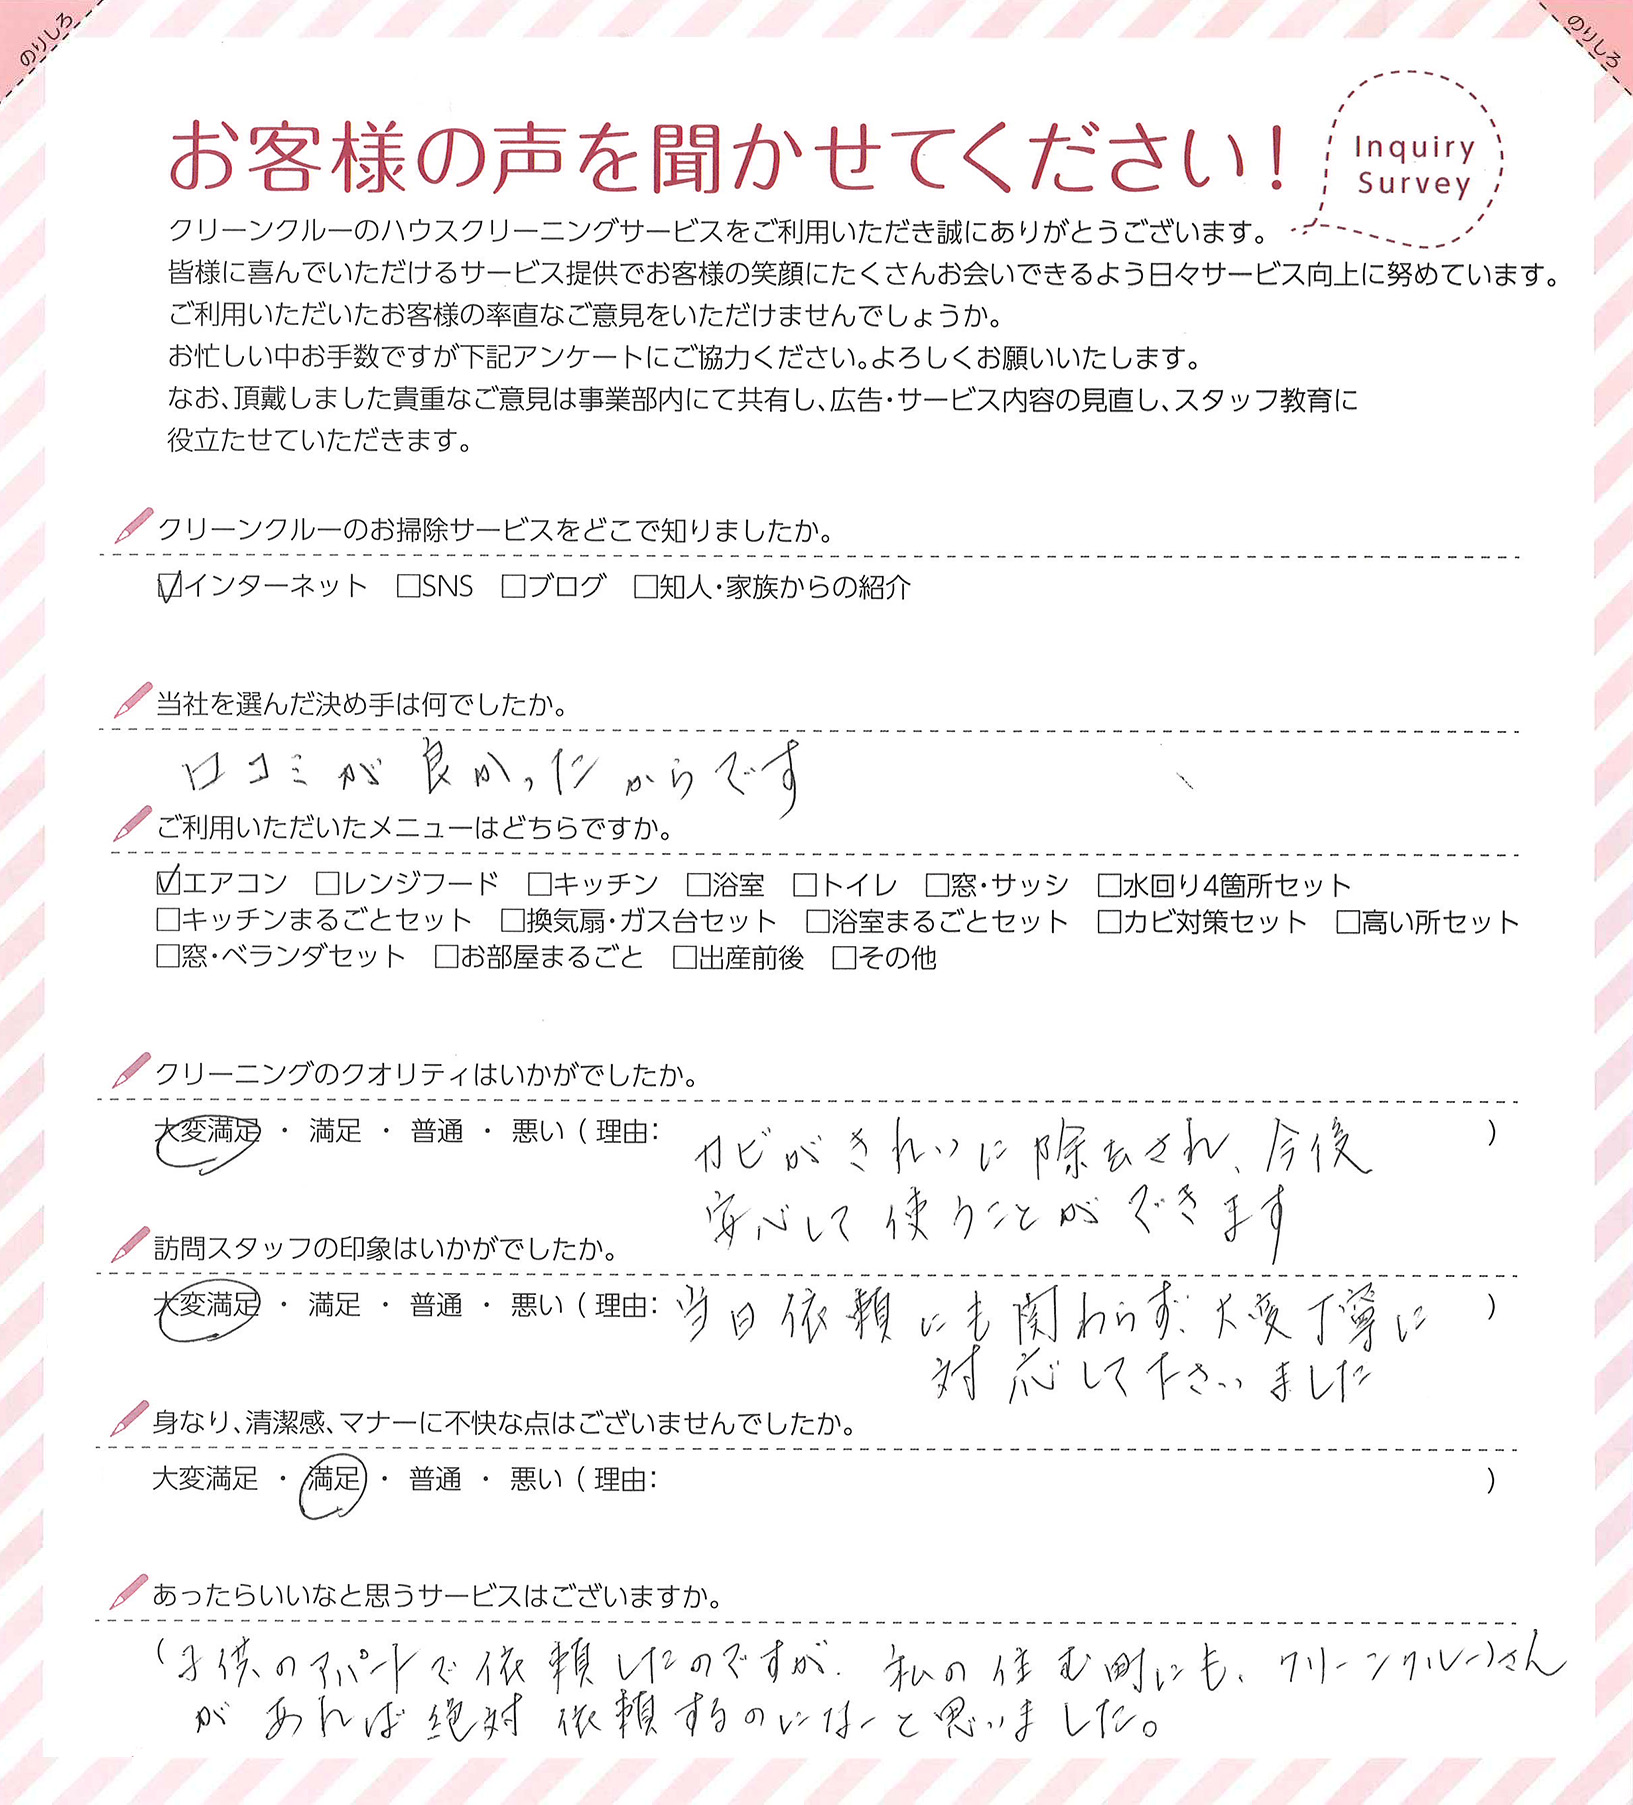 のりしろ
のりしろ
お客様の声を聞かせてください！
Inquiry
Survey
クリーンクルーのハウスクリーニングサービスをご利用いただき誠にありがとうございます。
皆様に喜んでいただけるサービス提供でお客様の笑顔にたくさんお会いできるよう日々サービス向上に努めています。
ご利用いただいたお客様の率直なご意見をいただけませんでしょうか。
お忙しい中お手数ですが下記アンケートにご協力ください。よろしくお願いいたします。
なお、頂戴しました貴重なご意見は事業部内にて共有し、広告・サービス内容の見直し、スタッフ教育に
役立たせていただきます。
クリーンクルーのお掃除サービスをどこで知りましたか。
☑インターネット □SNS □ブログ □知人・家族からの紹介
当社を選んだ決め手は何でしたか。
口コミが良かったからです
ご利用いただいたメニューはどちらですか。
☑エアコン □レンジフード □キッチン □浴室 □トイレ □窓・サッシ □水回り4箇所セット
□キッチンまるごとセット □換気扇・ガス台セット □浴室まるごとセット □カビ対策セット □高い所セット
□窓・ベランダセット □お部屋まるごと □出産前後 □その他
クリーニングのクオリティはいかがでしたか。
大変満足 ・ 満足 ・ 普通 ・ 悪い（理由： カビがきれいに除去され、今後 ）
安心して使うことができます
訪問スタッフの印象はいかがでしたか。
大変満足 ・ 満足 ・ 普通 ・ 悪い（理由： 当日依頼にも関わらず、大変丁寧に ）
対応して下さいました
身なり、清潔感、マナーに不快な点はございませんでしたか。
大変満足 ・ 満足 ・ 普通 ・ 悪い（理由： ）
あったらいいなと思うサービスはございますか。
（子供のアパートで依頼したのですが、私の住む町にも、クリーンクルーさん
があれば絶対依頼するのになーと思いました。